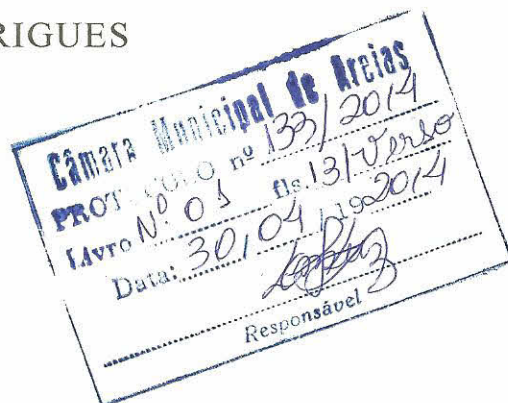 RIGUES
Câmara Municipal de Areias
PROTOCOLO nº 133/2014
Livro Nº 01 fls. 131 Verso
Data: 30/04/192014
Responsável